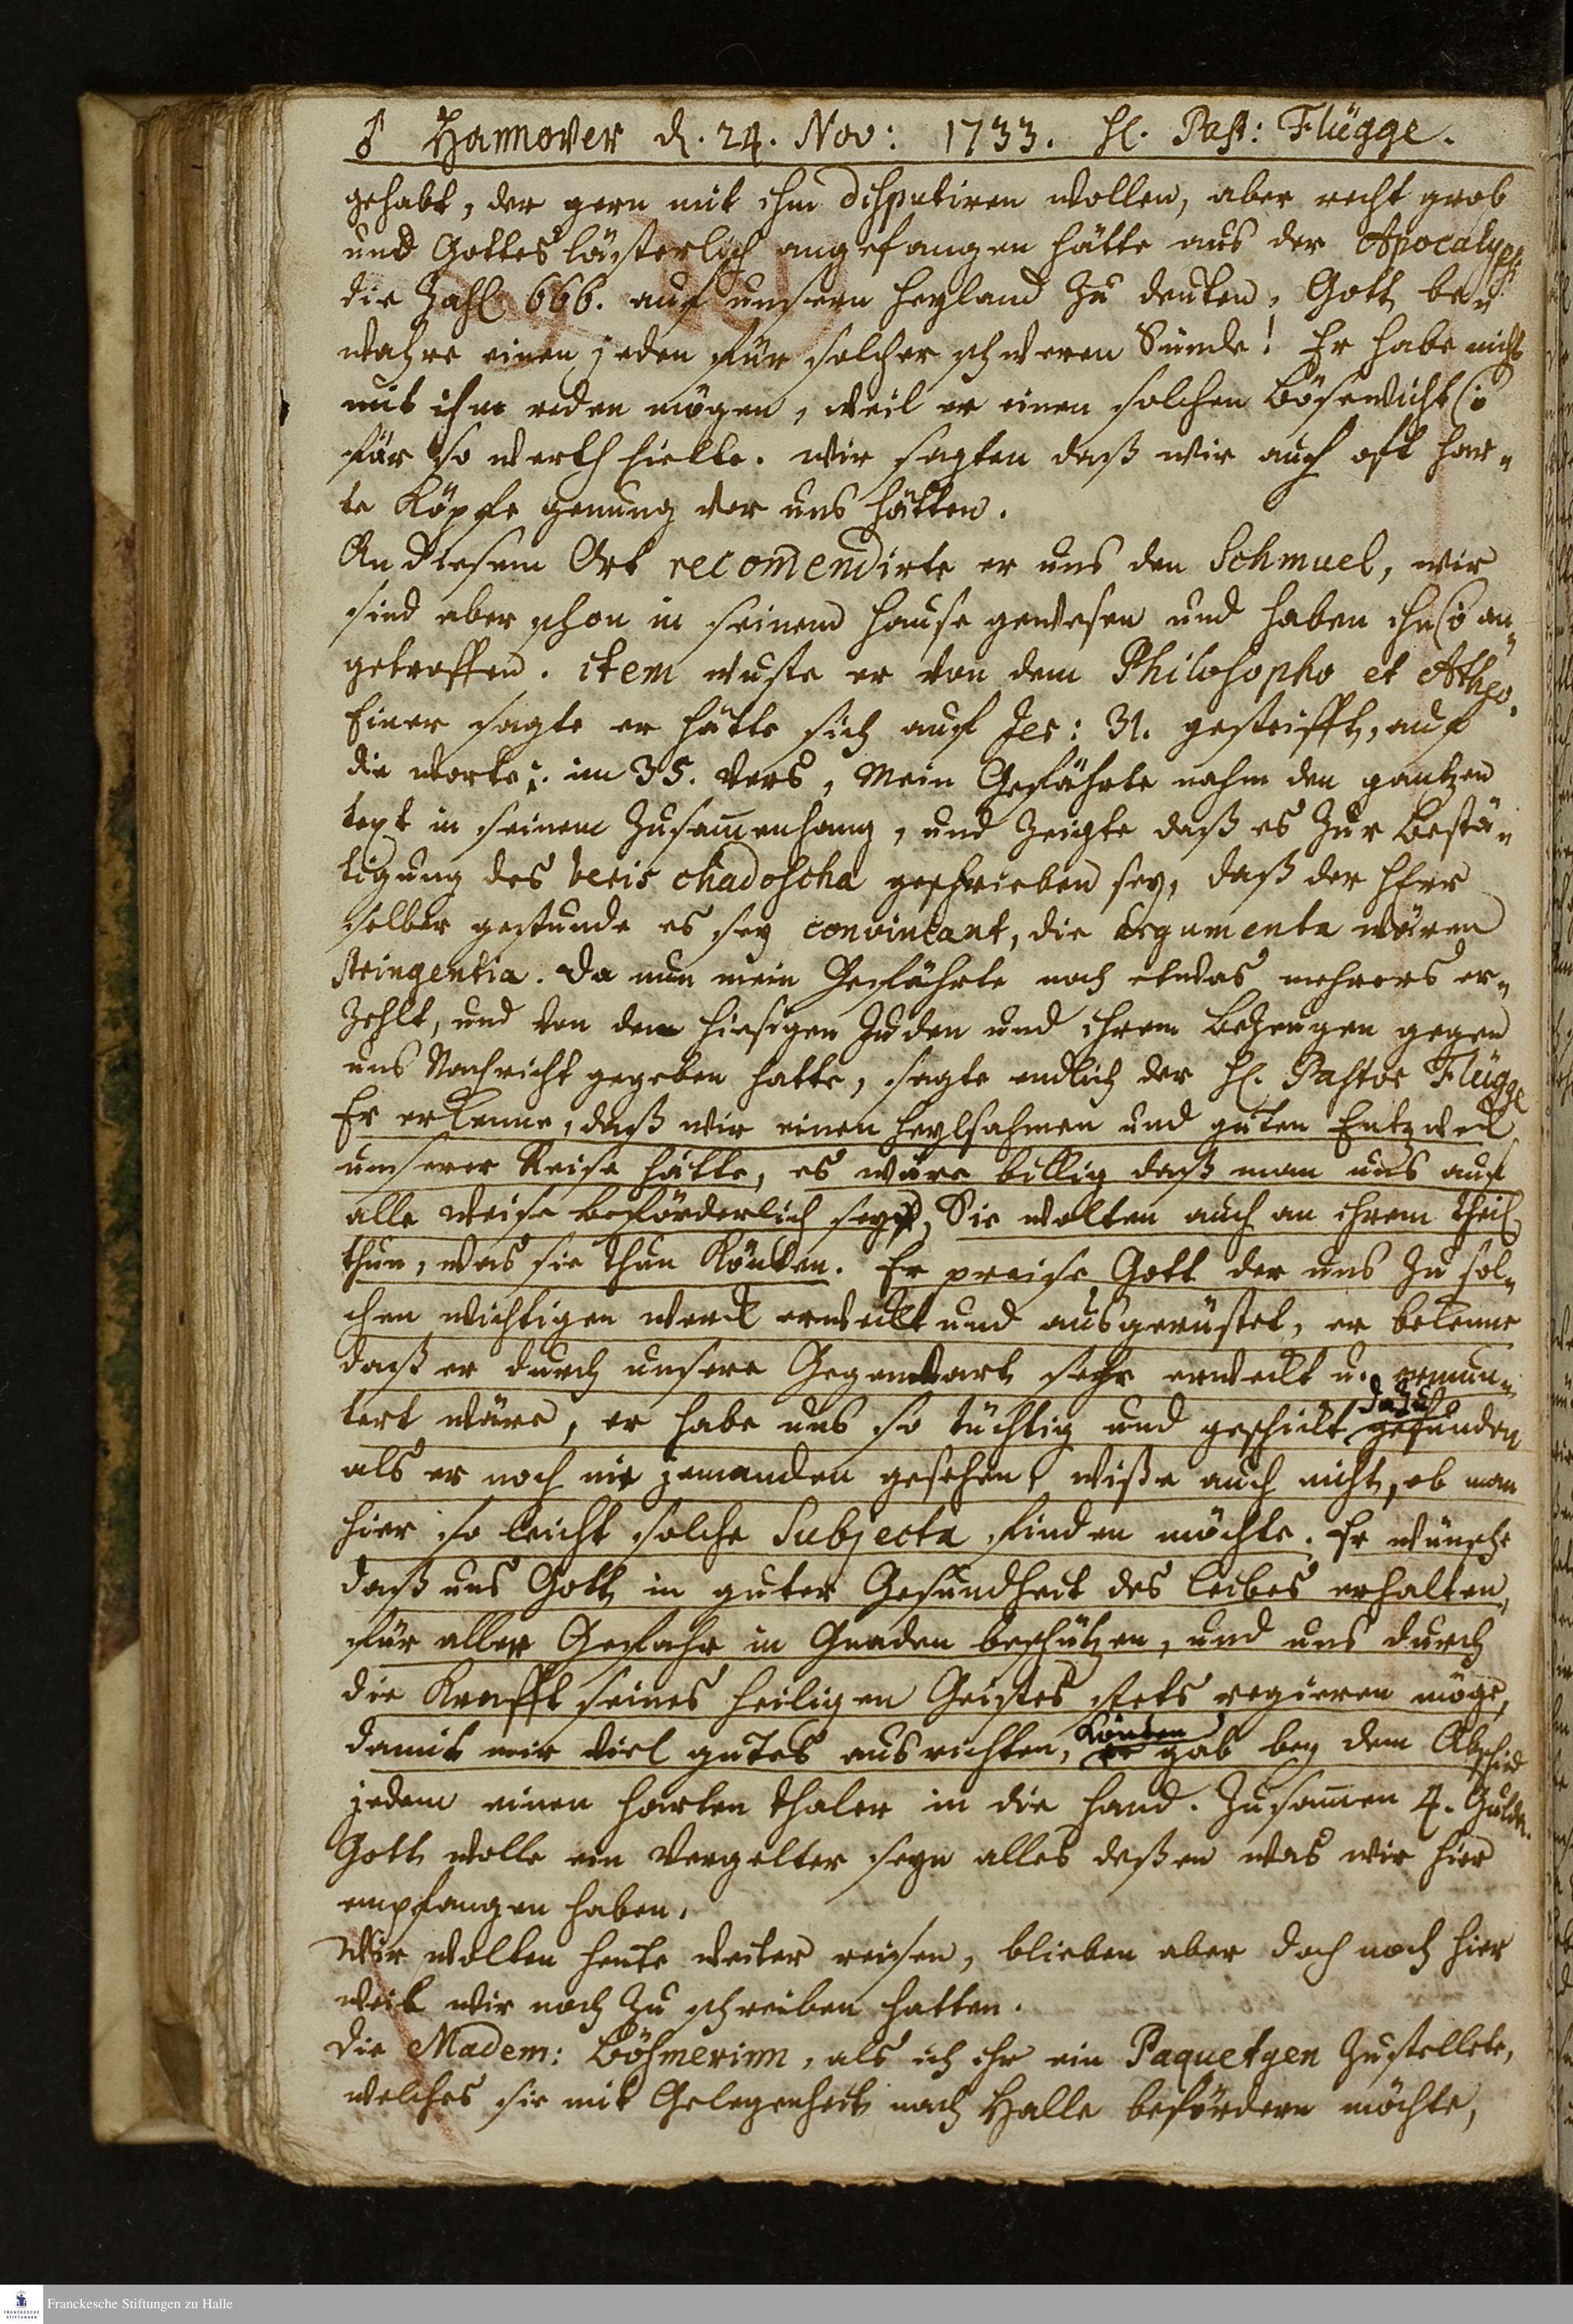 ♂ Hannover d. 24. Nov: 1733. H. Past: Flügge.
gehabt, der gern mit ihm disputiren wollen, aber recht grob
und Gotteslästerlich angefangen hätte aus der Apocalyps
die Zahl 666. auf unsern Heyland zu deuten, Gott be-
wahre einen jeden für solcher schweren Sünde! Er habe nicht
mit ihm reden mögen, weil er einen solchen bösewicht
für so werth hielte. Wir sagten daß wir auch oft har-
te Köpfe genung vor uns hätten.
An diesem Ort recom̄endirte er uns den Schmuel, wir
sind aber schon in seinem Hause gewesen und haben ihn an-
getroffen. item wuste er von dem Philosopho et Atheo.
Einer sagte er hätte sich auf Jer: 31. gesteifft, auf
die worte: im 35. Vers, Mein Gefährte nahm den gantzen
text in seinem Zusam̄enhang, und zeigte daß es zur Bestä-
tigung des beris chadoscha geschrieben sey, daß der Herr
selber gestunde es sey convincant, die Argumenta wären
stringentia. Da nun mein Gefährte noch etwas mehrers er-
zehlt, und von dem hiesigen Juden und ihrem Bezeugen gegen
uns Nachricht gegeben hatte, sagte endlich der H. Pastor Flügge
Er erkenne, daß wir einen heylsahmen und guten Entzweck
unserer Reise hätte, es wäre billig daß man uns auf
alle weise beförderlich sey, Sie wolten auch an ihrem theil
thun, was sie thun Könten. Er preise Gott der uns zu sol-
chen wichtigen werck erweckt und ausgerüstet, er bekenne
daß er durch unsere Gegenwart sehr erweckt u. ermun-
dazu
tert wäre, er habe uns so tüchtig und geschickt gefunden
als er noch nie jemanden gesehen, wiße auch nicht, ob man
hier so leicht solche Subjecta finden möchte. Er wünsche
daß uns Gott in guter Gesundheit des leibes erhalten,
für aller Gefahr in Gnaden beschützen, und uns durch
die Krafft seines heiligen Geistes stets regieren möge,
Könten
damit wir viel gutes ausrichten, er gab bey dem Abschied
jedem einen harten thaler in die Hand. Zusam̄en 4. Guld.
Gott wolle ein Vergelter seyn alles deßen was wir hier
empfangen haben.
Wir wolten heute weiter reisen, blieben aber doch noch hier
weil wir noch zu schreiben hatten.
Die Madem: Böhmerinn, als ich ihr ein Paquetgen zustellete,
welches sie mit Gelegenheit nach Halle befördern möchte,
Franckesche Stiftungen zu Halle